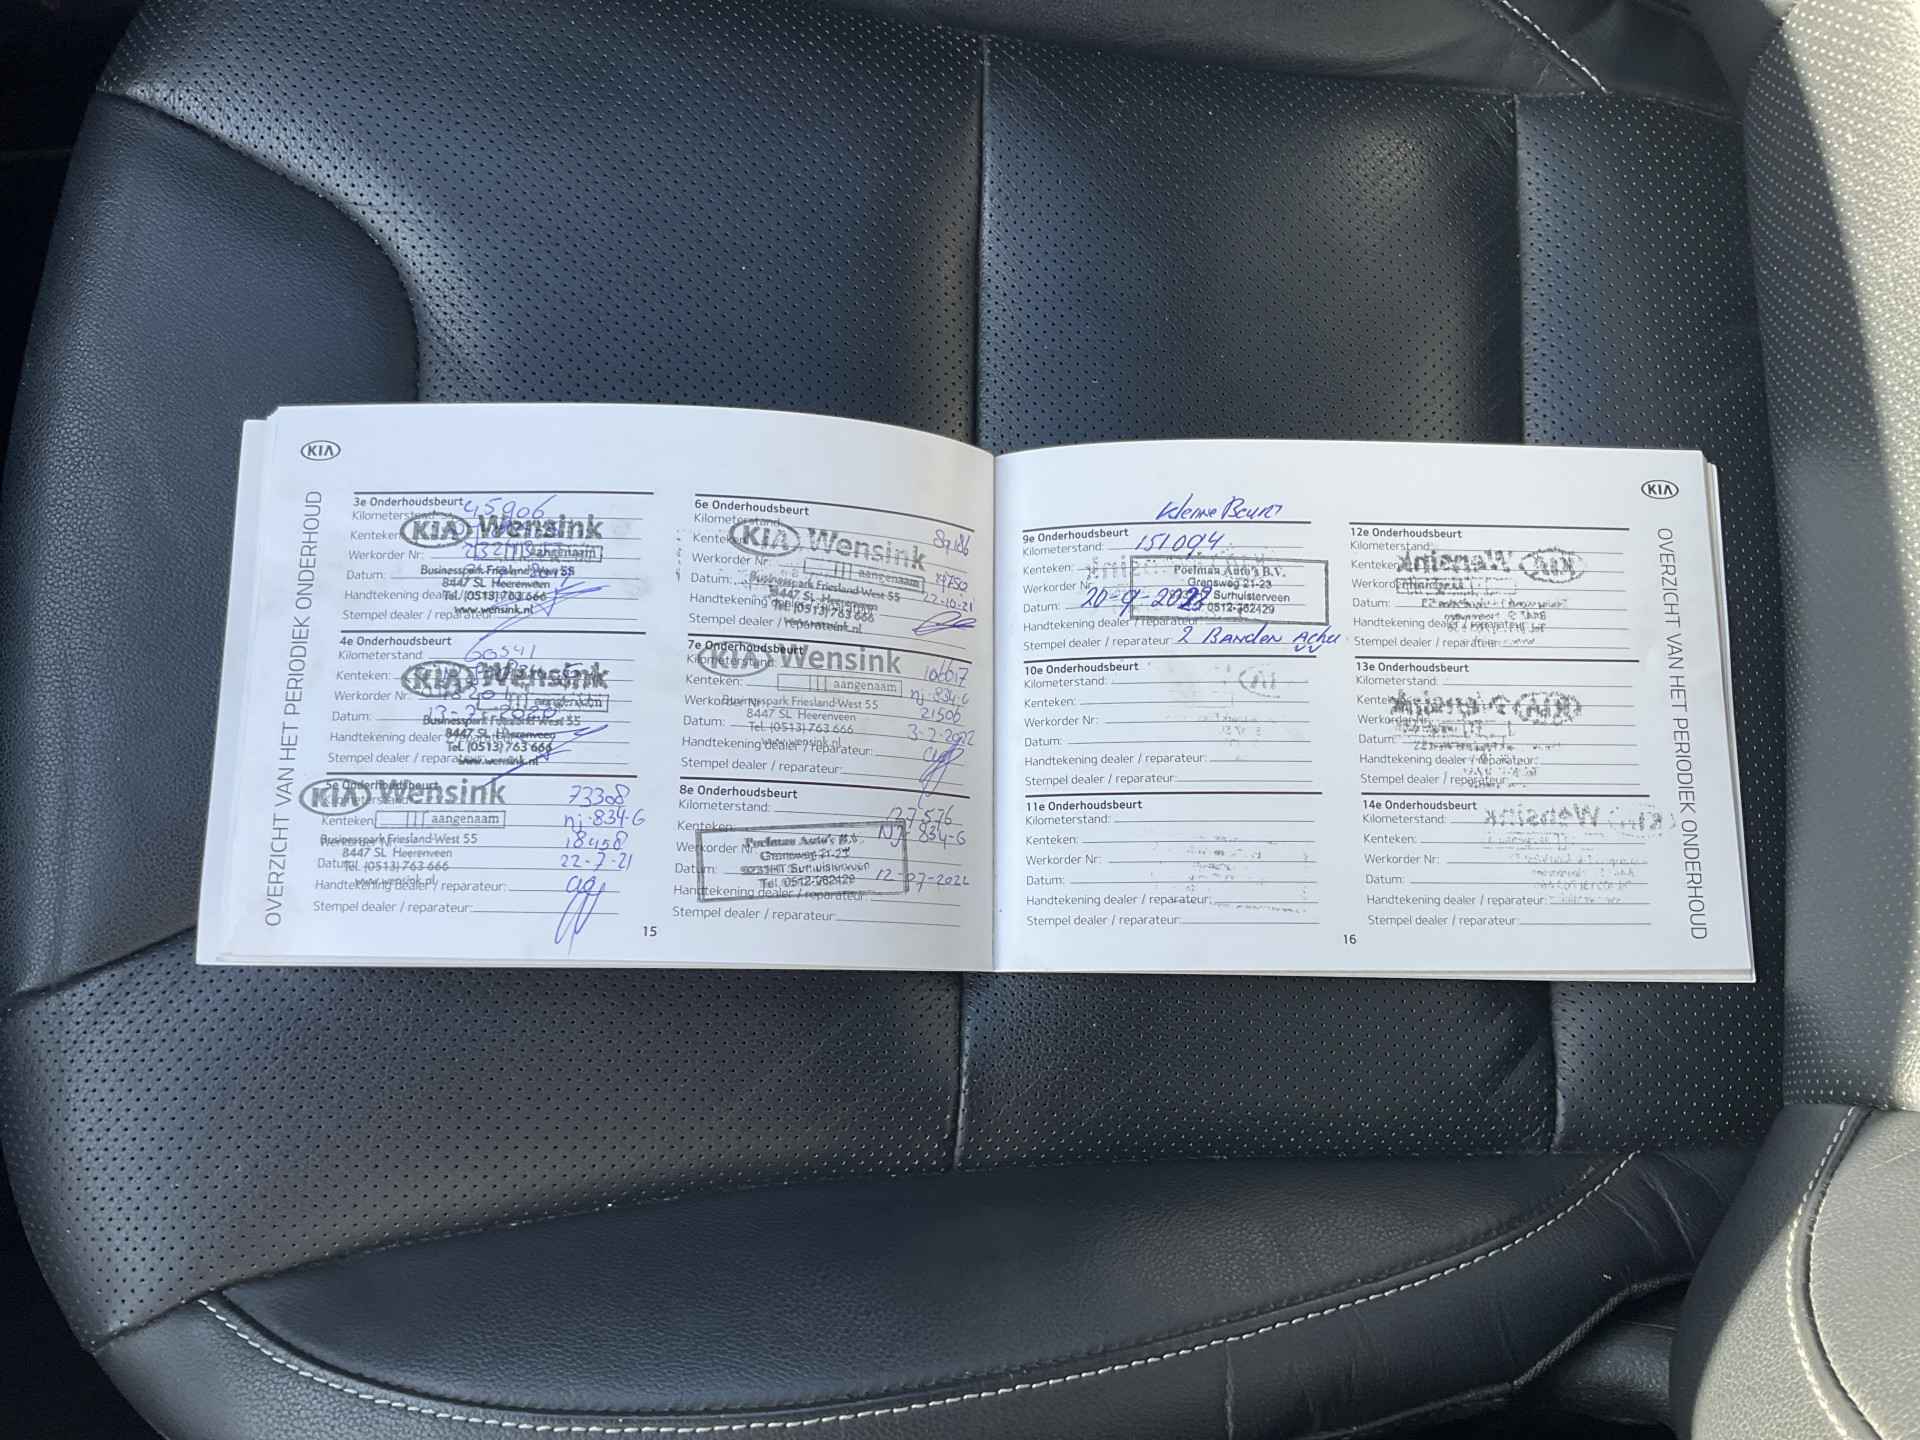 KIA
OVERZICHT VAN HET PERIODIEK ONDERHOUD
3e Onderhoudsbeurt
45906
Kilometerstand:
KIA Wensink
Kenteken:
aangenaam
Werkorder Nr:
Businesspark Friesland-West 55
Datum:
8447 SL Heerenveen
Handtekening dealer / reparateur:
Tel. (0513) 763 666
www.wensink.nl
Stempel dealer / reparateur:
4e Onderhoudsbeurt
Kilometerstand: 60541
KIA Wensink
Kenteken:
Werkorder Nr:
aangenaam
Datum:
Businesspark Friesland-West 55
8447 SL Heerenveen
Handtekening dealer / reparateur:
Tel. (0513) 763 666
Stempel dealer / reparateur:
www.wensink.nl
5e Onderhoudsbeurt
KIA Wensink
Kilometerstand: 73308
Kenteken: aangenaam nj-834-G
Businesspark Friesland-West 55
Werkorder Nr: 18458
8447 SL Heerenveen
Datum: 22-7-21
Tel. (0513) 763 666
www.wensink.nl
Handtekening dealer / reparateur:
Stempel dealer / reparateur:
6e Onderhoudsbeurt
Kilometerstand:
KIA Wensink
Kenteken:
aangenaam
Werkorder Nr:
Businesspark Friesland-West 55
Datum: 22-10-21
8447 SL Heerenveen
Tel. (0513) 763 666
Handtekening dealer / reparateur:
www.wensink.nl
Stempel dealer / reparateur:
7e Onderhoudsbeurt
KIA Wensink
Kilometerstand:
Kenteken: aangenaam nj-834-G
Businesspark Friesland-West 55
Werkorder Nr: 21506
8447 SL Heerenveen
Datum: 3-2-2022
Tel. (0513) 763 666
www.wensink.nl
Handtekening dealer / reparateur:
Stempel dealer / reparateur:
8e Onderhoudsbeurt
Kilometerstand: 127576
Kenteken: NJ-834-G
Poelman Auto's B.V.
Werkorder Nr:
Gransweg 21-23
Datum: 12-07-2022
Surhuisterveen
Tel. 0512-362429
Handtekening dealer / reparateur:
Stempel dealer / reparateur:
15
KIA
OVERZICHT VAN HET PERIODIEK ONDERHOUD
Kleine Beurt
9e Onderhoudsbeurt
Kilometerstand: 151094
Kenteken:
Poelman Auto's B.V.
Werkorder Nr:
Gransweg 21-23
Surhuisterveen
Datum:
0512-362429
Handtekening dealer / reparateur:
Stempel dealer / reparateur: 2 Banden Achter
10e Onderhoudsbeurt
Kilometerstand:
Kenteken:
Werkorder Nr:
Datum:
Handtekening dealer / reparateur:
Stempel dealer / reparateur:
11e Onderhoudsbeurt
Kilometerstand:
Kenteken:
Werkorder Nr:
Datum:
Handtekening dealer / reparateur:
Stempel dealer / reparateur:
12e Onderhoudsbeurt
Kilometerstand:
Kenteken:
Werkorder Nr:
Datum:
Handtekening dealer / reparateur:
Stempel dealer / reparateur:
13e Onderhoudsbeurt
Kenteken:
Werkorder Nr:
Datum:
Handtekening dealer / reparateur:
Stempel dealer / reparateur:
14e Onderhoudsbeurt
Kilometerstand:
Kenteken:
Werkorder Nr:
Datum:
Handtekening dealer / reparateur:
Stempel dealer / reparateur:
16